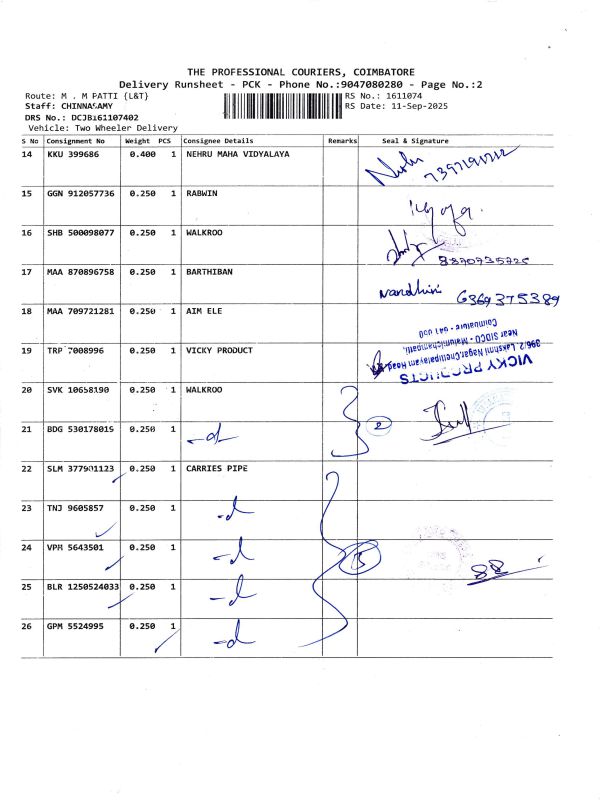 THE PROFESSIONAL COURIERS, COIMBATORE
Delivery Runsheet - PCK - Phone No.:9047080280 - Page No.:2
Route: M . M PATTI {L&T} RS No.: 1611074
Staff: CHINNASAMY RS Date: 11-Sep-2025
DRS No.: DCJB161107402
Vehicle: Two Wheeler Delivery
S No Consignment No Weight PCS Consignee Details Remarks Seal & Signature
14 KKU 399686 0.400 1 NEHRU MAHA VIDYALAYA
15 GGN 912057736 0.250 1 RABWIN
16 SHB 500098077 0.250 1 WALKROO
17 MAA 870896758 0.250 1 BARTHIBAN
Nandhini 6369375389
18 MAA 709721281 0.250 1 AIM ELE
19 TRP 7008996 0.250 1 VICKY PRODUCT
VICKY PRODUCTS
396/2, Lakshmi Nagar, Chettipalayam Road,
Near SIDCO - Malumichampatti,
Coimbatore - 641 050
20 SVK 10658190 0.250 1 WALKROO
2
21 BDG 530178015 0.250 1 -d
22 SLM 377901123 0.250 1 CARRIES PIPE
23 TNJ 9605857 0.250 1 -d
24 VPM 5643501 0.250 1 -d
25 BLR 1250524033 0.250 1 -d
26 GPM 5524995 0.250 1 -d